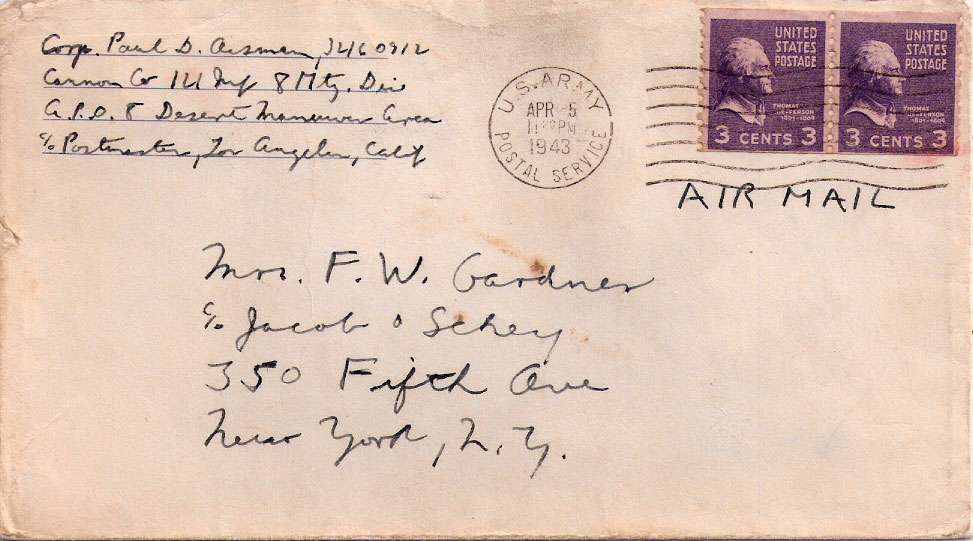 Corp. Paul D.
Cannon Co 121 Inf 8 Mtz. Div
A.P.O. 8 Desert Maneuver Area
c/o Postmaster, Los Angeles, Calif
U.S. ARMY
POSTAL SERVICE
APR 5
PM
1943
UNITED
STATES
POSTAGE
THOMAS
JEFFERSON
1801-1809
3 CENTS 3
UNITED
STATES
POSTAGE
THOMAS
JEFFERSON
1801-1809
3 CENTS 3
AIR MAIL
Mrs. F. W. Gardner
c/o Jacob Schey
350 Fifth Ave
New York, N.Y.